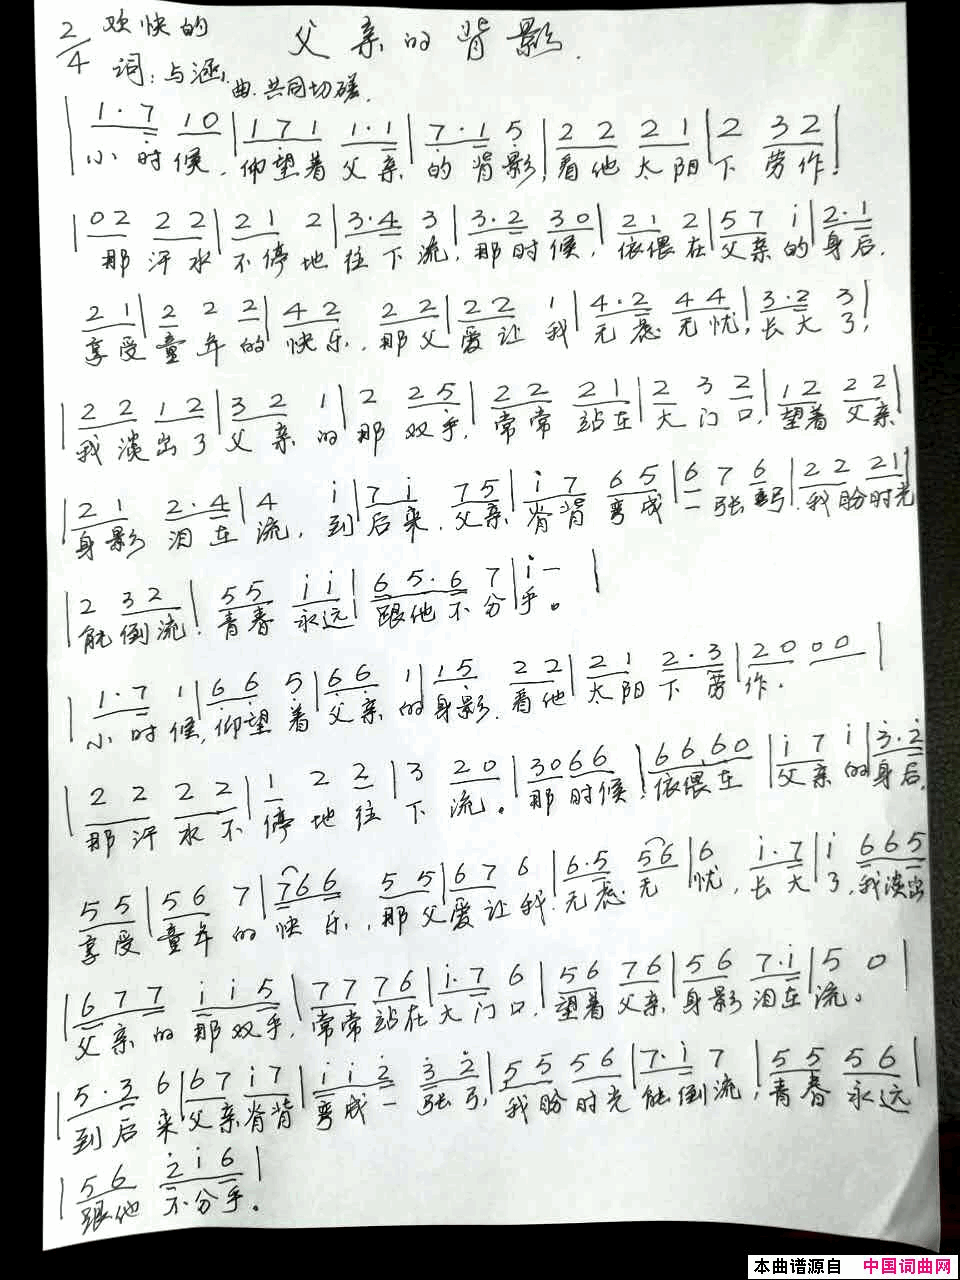 2/4 欢快的 父亲的背影
词：与涵 曲：共同切磋
| 1·7 10 | 171 1·1 | 7·1 5 | 22 21 | 2 32 |
小时候，仰望着父亲的背影，看他太阳下劳作，
| 02 22 | 21 2 | 3·4 3 | 3·2 30 | 21 2 | 57 i | 2·1
那汗水不停地往下流，那时候，依偎在父亲的身后，
21 | 2 2 2 | 42 22 | 22 1 | 4·2 44 | 3·2 3 |
享受童年的快乐，那父爱让我无虑无忧，长大了，
| 22 12 | 32 1 | 2 25 | 22 21 | 2 3 2 | 12 22 |
我淡出了父亲的那双手，常常站在大门口，望着父亲
21 2·4 | 4 i | 7i 75 | i7 65 | 6 7 6 | 22 21 |
身影泪在流，到后来，父亲脊背弯成一张弓，我盼时光
| 2 32 | 55 ii | 65·6 7 | i - |
能倒流，青春永远跟他不分手。
| 1·7 1 | 66 5 | 66 1 | 15 22 | 21 2·3 | 20 00 |
小时候，仰望着父亲的身影，看他太阳下劳作，
| 22 22 | 1 2 2 | 3 20 | 3066 | 6660 | i 7 i | 3·2
那汗水不停地往下流。那时候，依偎在父亲的身后，
55 | 56 7 | 766 55 | 67 6 | 6·5 56 | 6 i·7 | i 665
享受童年的快乐，那父爱让我无虑无忧，长大了，我淡出
| 677 ii5 | 77 76 | i·7 6 | 56 76 | 56 7·i | 5 0 |
父亲的那双手，常常站在大门口，望着父亲身影泪在流。
| 5·3 6 | 67 i7 | ii2 32 | 55 56 | 7·i 7 | 55 56 |
到后来父亲脊背弯成一张弓，我盼时光能倒流，青春永远
| 56 2i6 |
跟他不分手。
本曲谱源自 中国词曲网